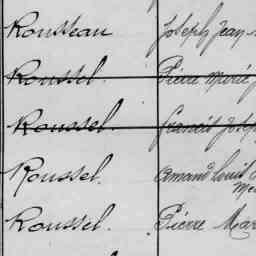 Rousseau Joseph Jean
Roussel. Pierre Marie
Roussel. Francis Joseph
Roussel. Armand Louis
Roussel. Pierre Mar